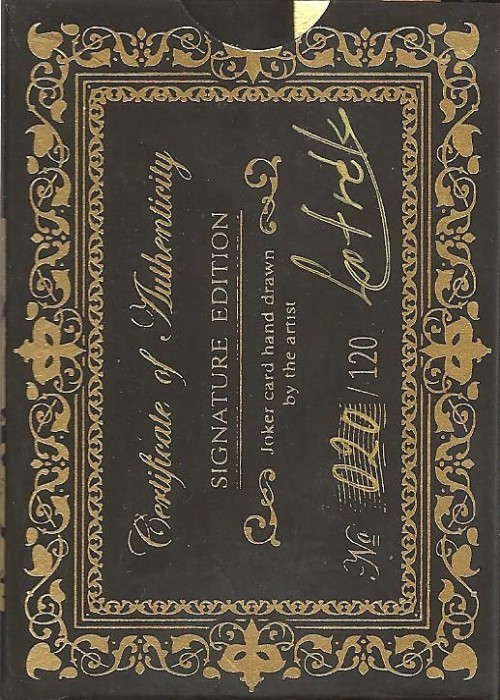 Certificate of Authenticity
SIGNATURE EDITION
Joker card hand drawn
by the artist
№ 020 / 120